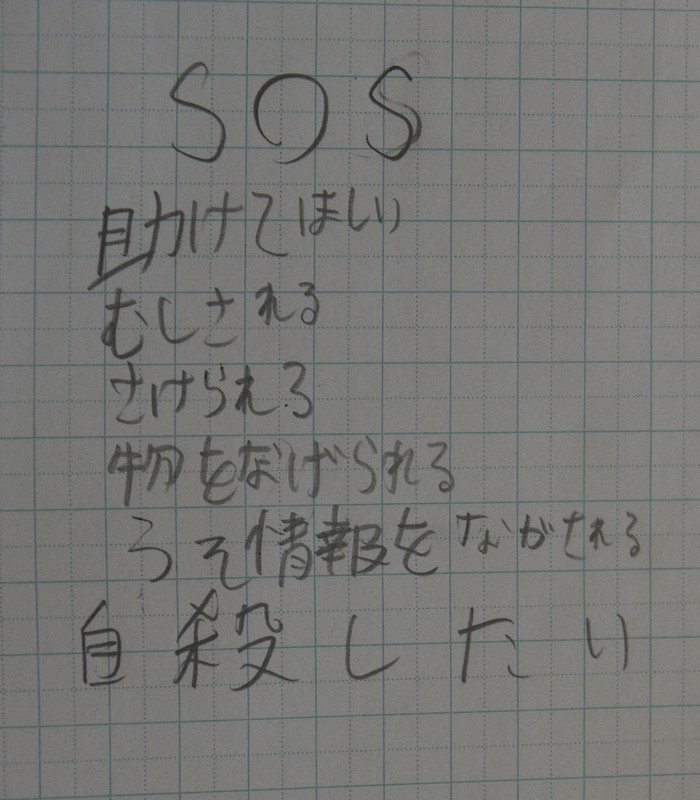 SOS
助けてほしい
むしされる
さけられる
物をなげられる
うそ情報をながされる
自殺したい